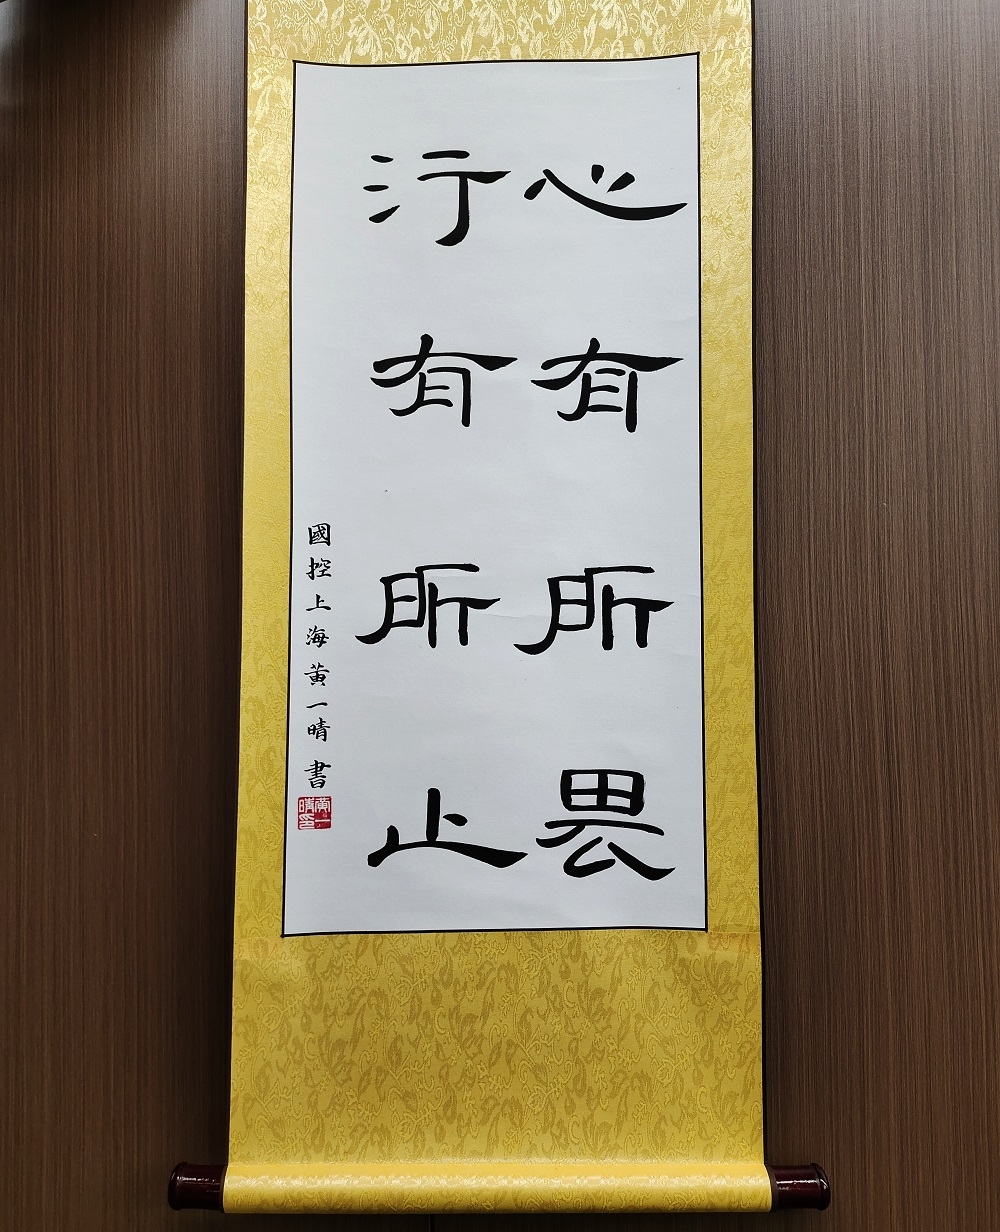 心有所畏
行有所止
國控上海黄一晴書
黄一晴印